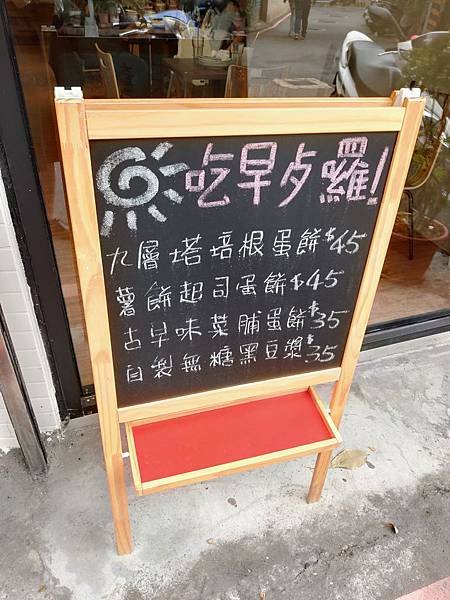 吃早歺囉!
九層塔培根蛋餅$45
薯餅起司蛋餅$45
古早味菜脯蛋餅$35
自製無糖黑豆漿$35